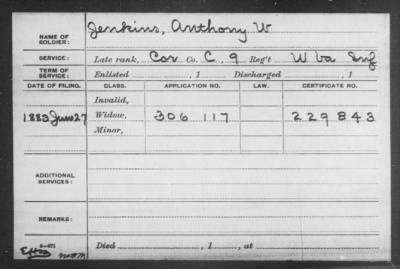 NAME OF SOLDIER: Jenkins, Anthony W
SERVICE: Late rank, Cor Co. C, 9 Reg't W Va Inf
TERM OF SERVICE: Enlisted , 1 Discharged , 1
DATE OF FILING. CLASS. APPLICATION NO. LAW. CERTIFICATE NO.
Invalid,
1883 June 27 Widow, 306 117 229843
Minor,
ADDITIONAL SERVICES:
REMARKS:
Died , 1 , at